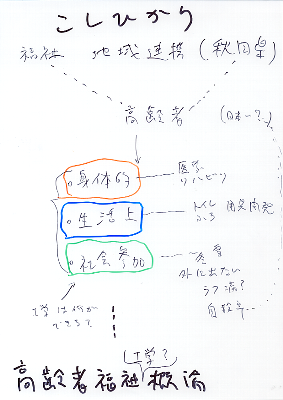 こしひかり
福祉 地域連携(秋田皇)
高齢者 (日本一?)
身体的 医学 リハビリ
生活上 トイレ ふろ 用具開発
社会参加
外に出たい
工学は何ができる?
工学?
高齢者福祉概論